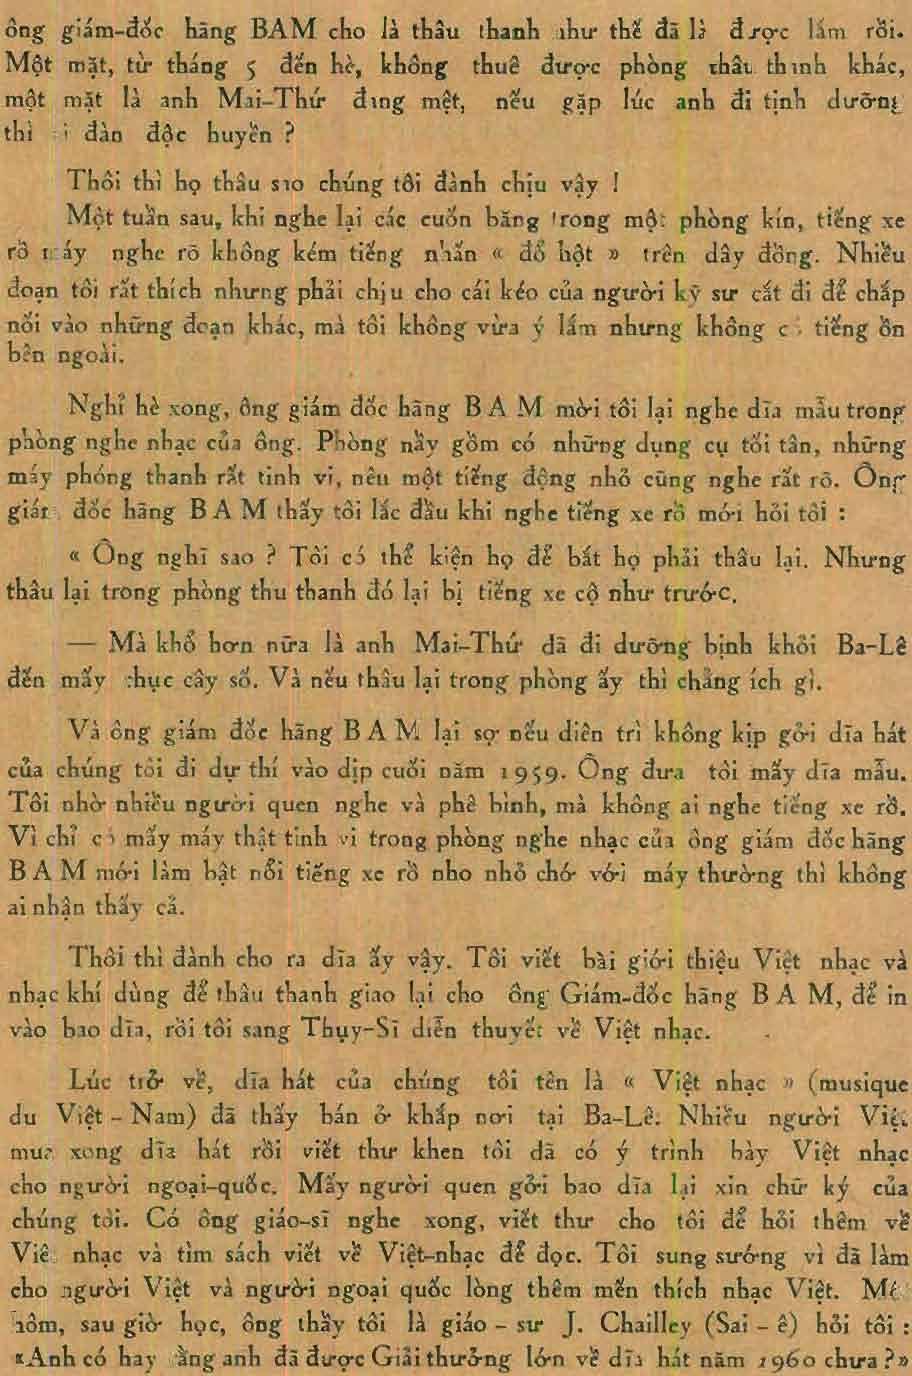 ông giám-đốc hãng BAM cho là thâu thanh như thế đã là được lắm rồi.
Một mặt, từ tháng 5 đến hè, không thuê được phòng thâu thanh khác,
một mặt là anh Mai-Thứ đang mệt, nếu gặp lúc anh đi tịnh dưỡng
thì ai đàn độc huyền ?
Thôi thì họ thâu sao chúng tôi đành chịu vậy !
Một tuần sau, khi nghe lại các cuốn băng trong một phòng kín, tiếng xe
rồ máy nghe rõ không kém tiếng nhấn « đổ hột » trên dây đồng. Nhiều
đoạn tôi rất thích nhưng phải chịu cho cái kéo của người kỹ sư cắt đi để chắp
nối vào những đoạn khác, mà tôi không vừa ý lắm nhưng không có tiếng ồn
bên ngoài.
Nghỉ hè xong, ông giám đốc hãng BAM mời tôi lại nghe dĩa mẫu trong
phòng nghe nhạc của ông. Phòng nầy gồm có những dụng cụ tối tân, những
máy phóng thanh rất tinh vi, nên một tiếng động nhỏ cũng nghe rất rõ. Ông
giám đốc hãng BAM thấy tôi lắc đầu khi nghe tiếng xe rồ mới hỏi tôi :
« Ông nghĩ sao ? Tôi có thể kiện họ để bắt họ phải thâu lại. Nhưng
thâu lại trong phòng thu thanh đó lại bị tiếng xe cộ như trước.
— Mà khổ hơn nữa là anh Mai-Thứ đã đi dưỡng bịnh khỏi Ba-Lê
đến mấy chục cây số. Và nếu thâu lại trong phòng ấy thì chẳng ích gì.
Và ông giám đốc hãng BAM lại sợ nếu diên trì không kịp gởi dĩa hát
của chúng tôi đi dự thí vào dịp cuối năm 1959. Ông đưa tôi mấy dĩa mẫu.
Tôi nhờ nhiều người quen nghe và phê bình, mà không ai nghe tiếng xe rồ.
Vì chỉ có mấy máy thật tinh vi trong phòng nghe nhạc của ông giám đốc hãng
BAM mới làm bật nổi tiếng xe rồ nho nhỏ chớ với máy thường thì không
ai nhận thấy cả.
Thôi thì đành cho ra dĩa ấy vậy. Tôi viết bài giới thiệu Việt nhạc và
nhạc khí dùng để thâu thanh giao lại cho ông Giám-đốc hãng BAM, để in
vào bao dĩa, rồi tôi sang Thụy-Sĩ diễn thuyết về Việt nhạc.
Lúc trở về, dĩa hát của chúng tôi tên là « Việt nhạc » (musique
du Việt - Nam) đã thấy bán ở khắp nơi tại Ba-Lê. Nhiều người Việt
mua xong dĩa hát rồi viết thư khen tôi đã có ý trình bày Việt nhạc
cho người ngoại-quốc. Mấy người quen gởi bao dĩa lại xin chữ ký của
chúng tôi. Có ông giáo-sĩ nghe xong, viết thư cho tôi để hỏi thêm về
Việt nhạc và tìm sách viết về Việt-nhạc để đọc. Tôi sung sướng vì đã làm
cho người Việt và người ngoại quốc lòng thêm mến thích nhạc Việt. Một
hôm, sau giờ học, ông thầy tôi là giáo - sư J. Chailley (Sai - ê) hỏi tôi :
«Anh có hay rằng anh đã được Giải thưởng lớn về dĩa hát năm 1960 chưa ?»